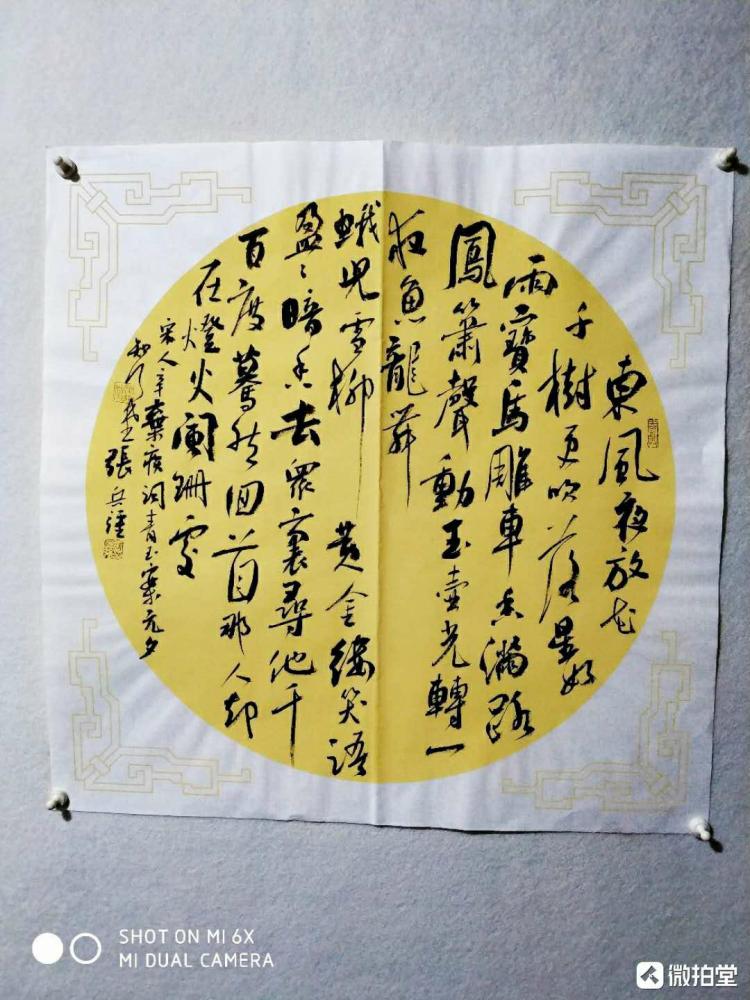 東風夜放花
千樹更吹落星如
雨寶馬雕車香滿路
鳳簫聲動玉壶光轉一
夜魚龍舞
蛾兒雪柳黄金縷笑語
盈盈暗香去眾裏尋他千
百度驀然回首那人却
在燈火闌珊處
宋人辛棄疾词青玉案元夕
張兵
SHOT ON MI 6X
MI DUAL CAMERA
微拍堂